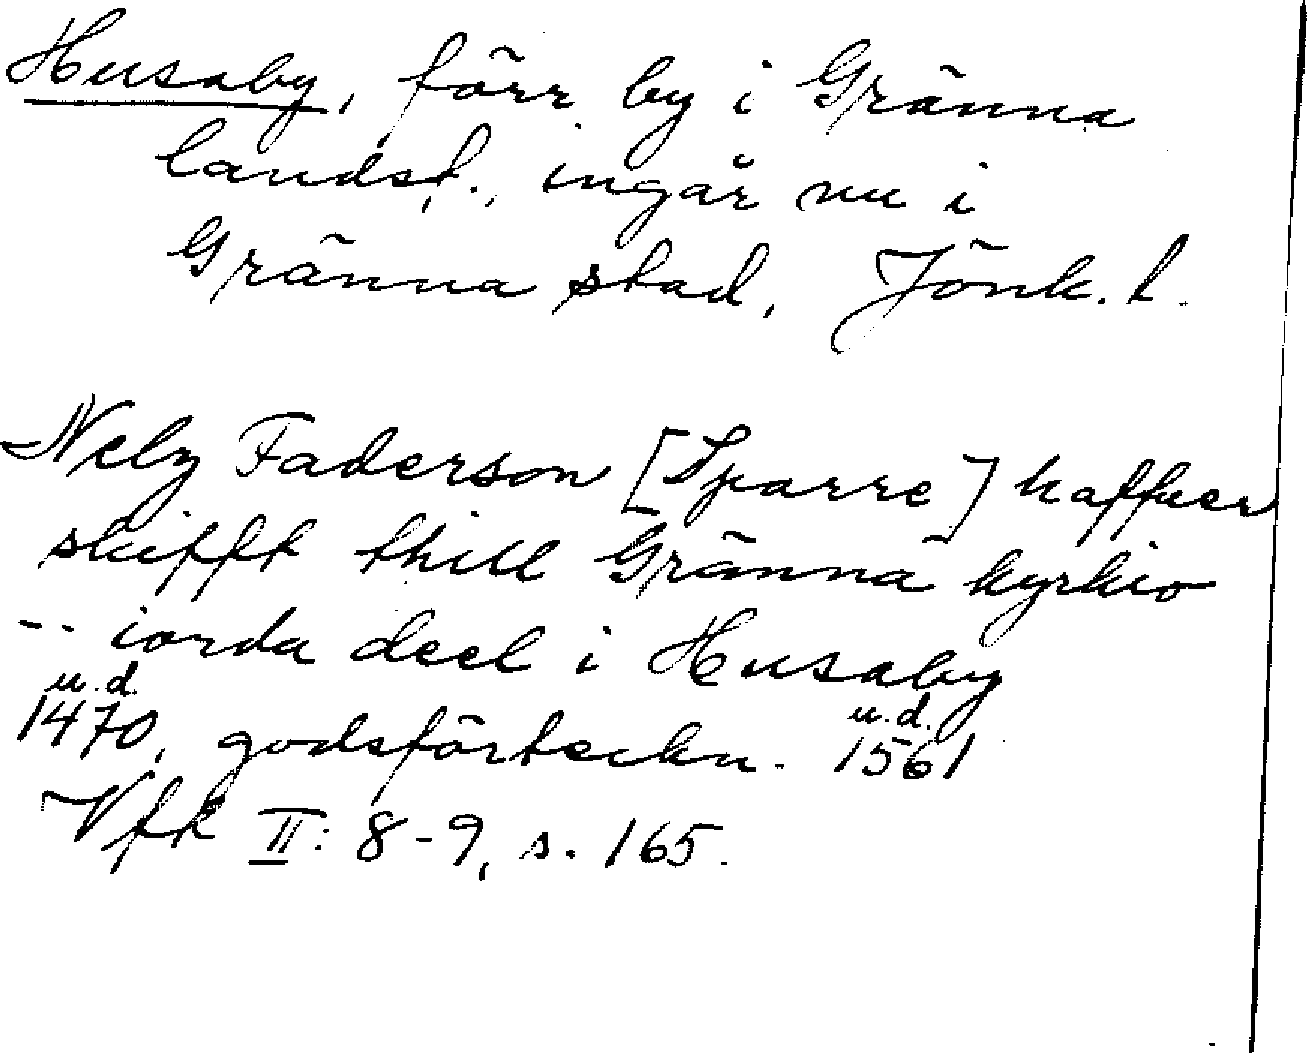 Husaby, förr by i Gränna
landsf., ingår nu i
Gränna stad, Jönk. l.
Nely Faderson [Sparre] haffuer
skifft thill Gränna kyrkio
-- iorda deel i Husaby
u.d. 1470, godsförteckn. u.d. 1561
Vfk II: 8-9, s. 165.